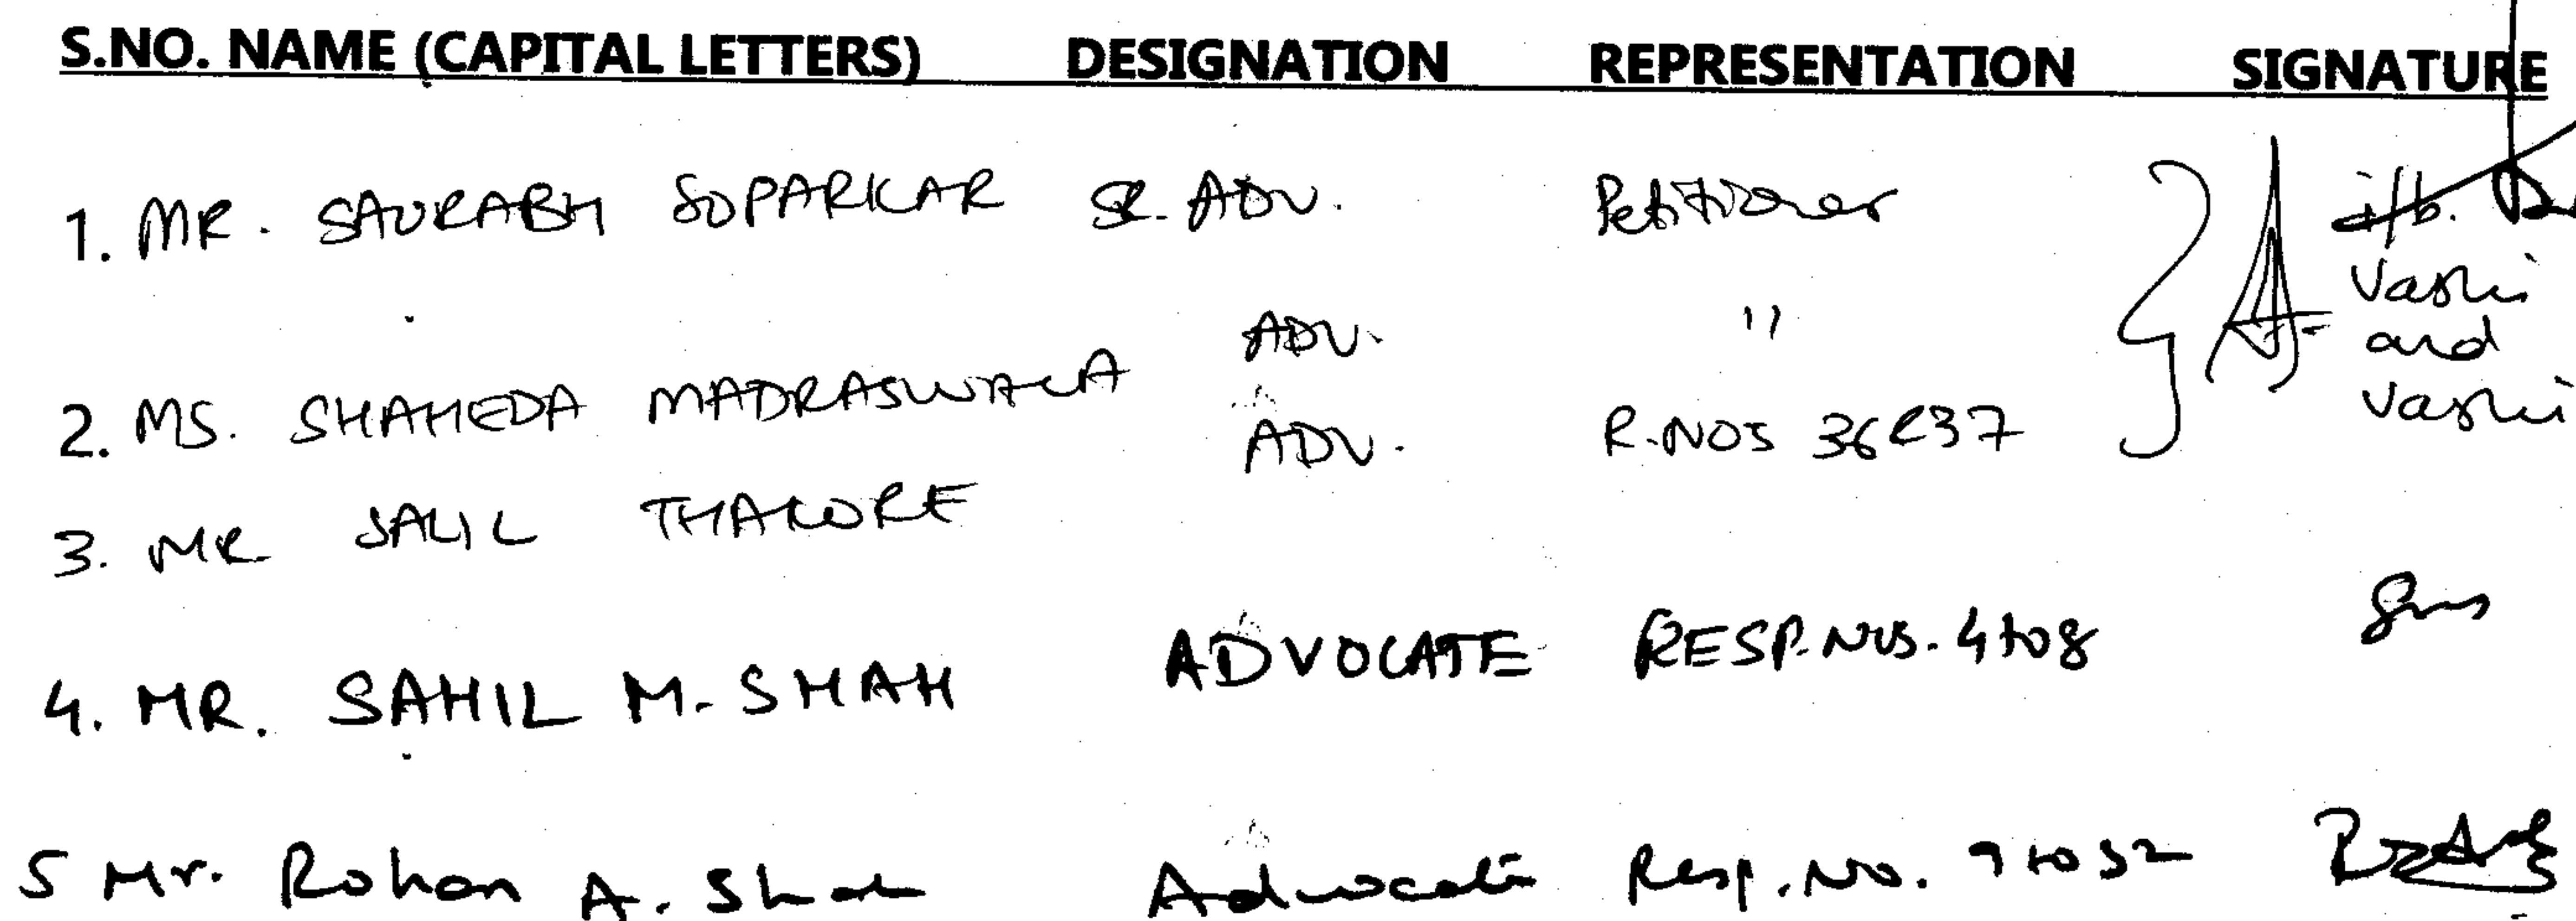 S.NO. NAME (CAPITAL LETTERS) DESIGNATION REPRESENTATION SIGNATURE
1. MR. SAURABH SOPARKAR SR. ADV. Petitioner i/b.
Vashi
and
Vashi
2. MS. SHAHEDA MADRASWALA ADV. "
3. MR SALIL THAKORE ADV. R.NOS 36 & 37
4. MR. SAHIL M. SHAH ADVOCATE RESP. NOS. 4 to 8
5 Mr. Rohan A. Shah Advocate Resp. No. 9 to 32